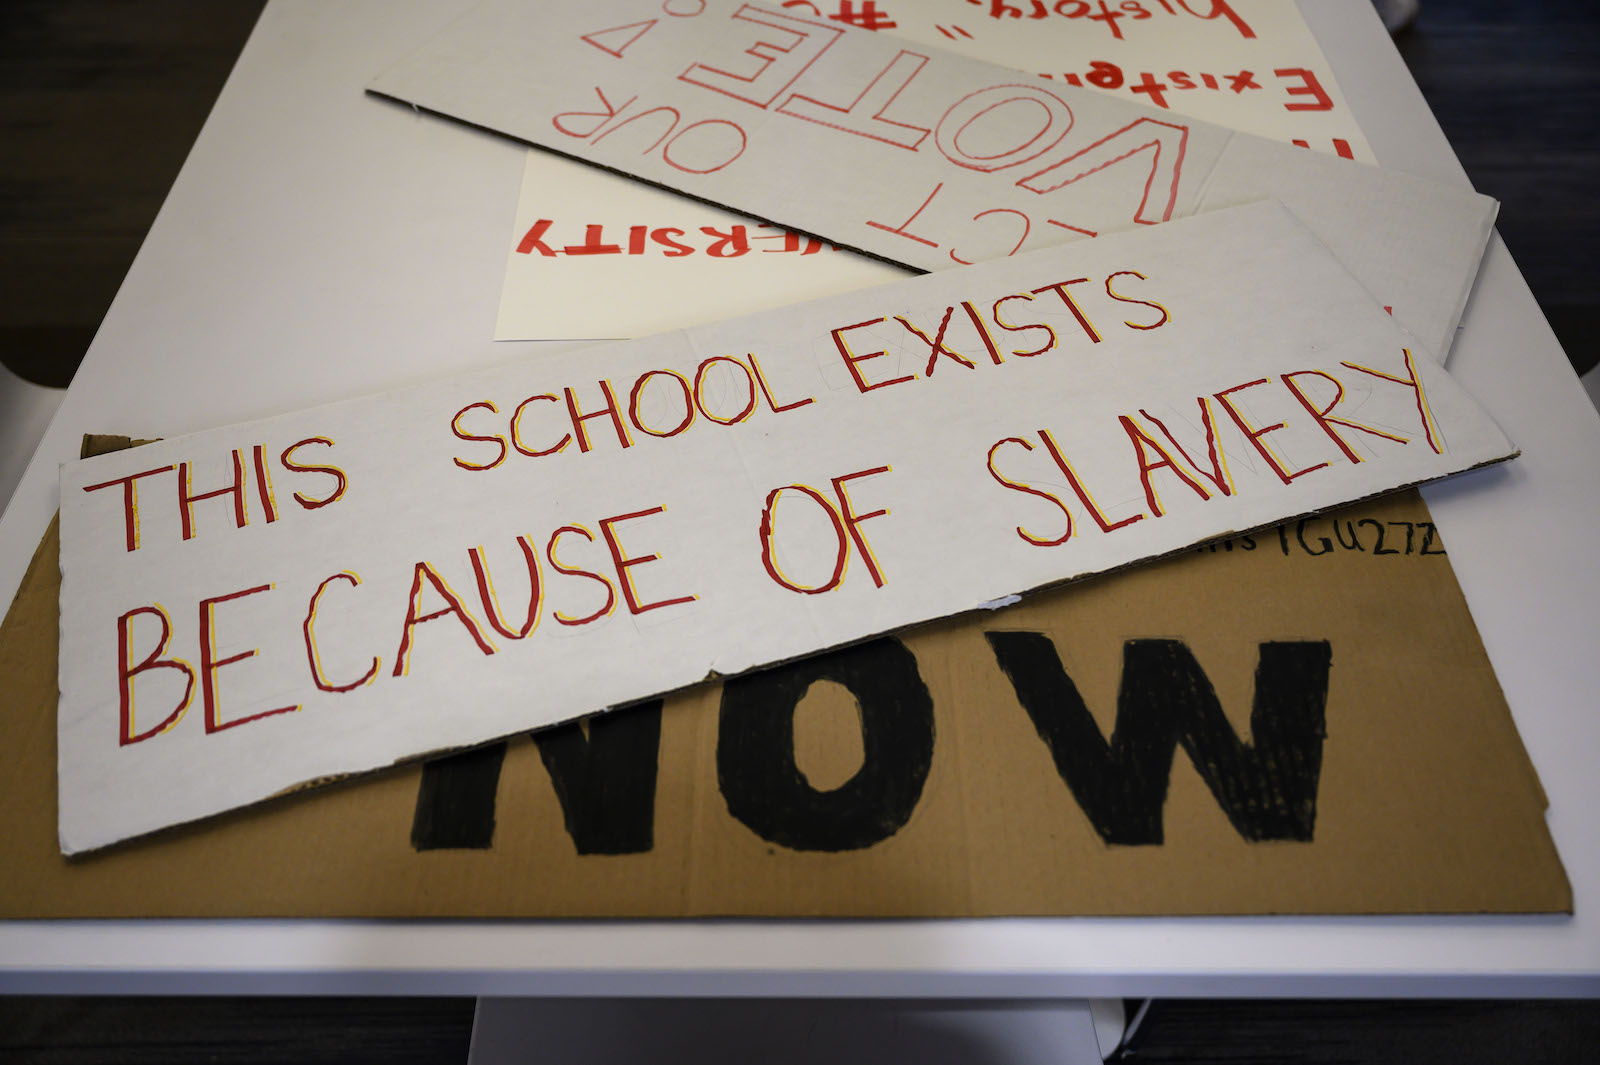 history." #
Existen
VOTE
OUR
CT
VERSITY
THIS SCHOOL EXISTS
BECAUSE OF SLAVERY
GU272
NOW